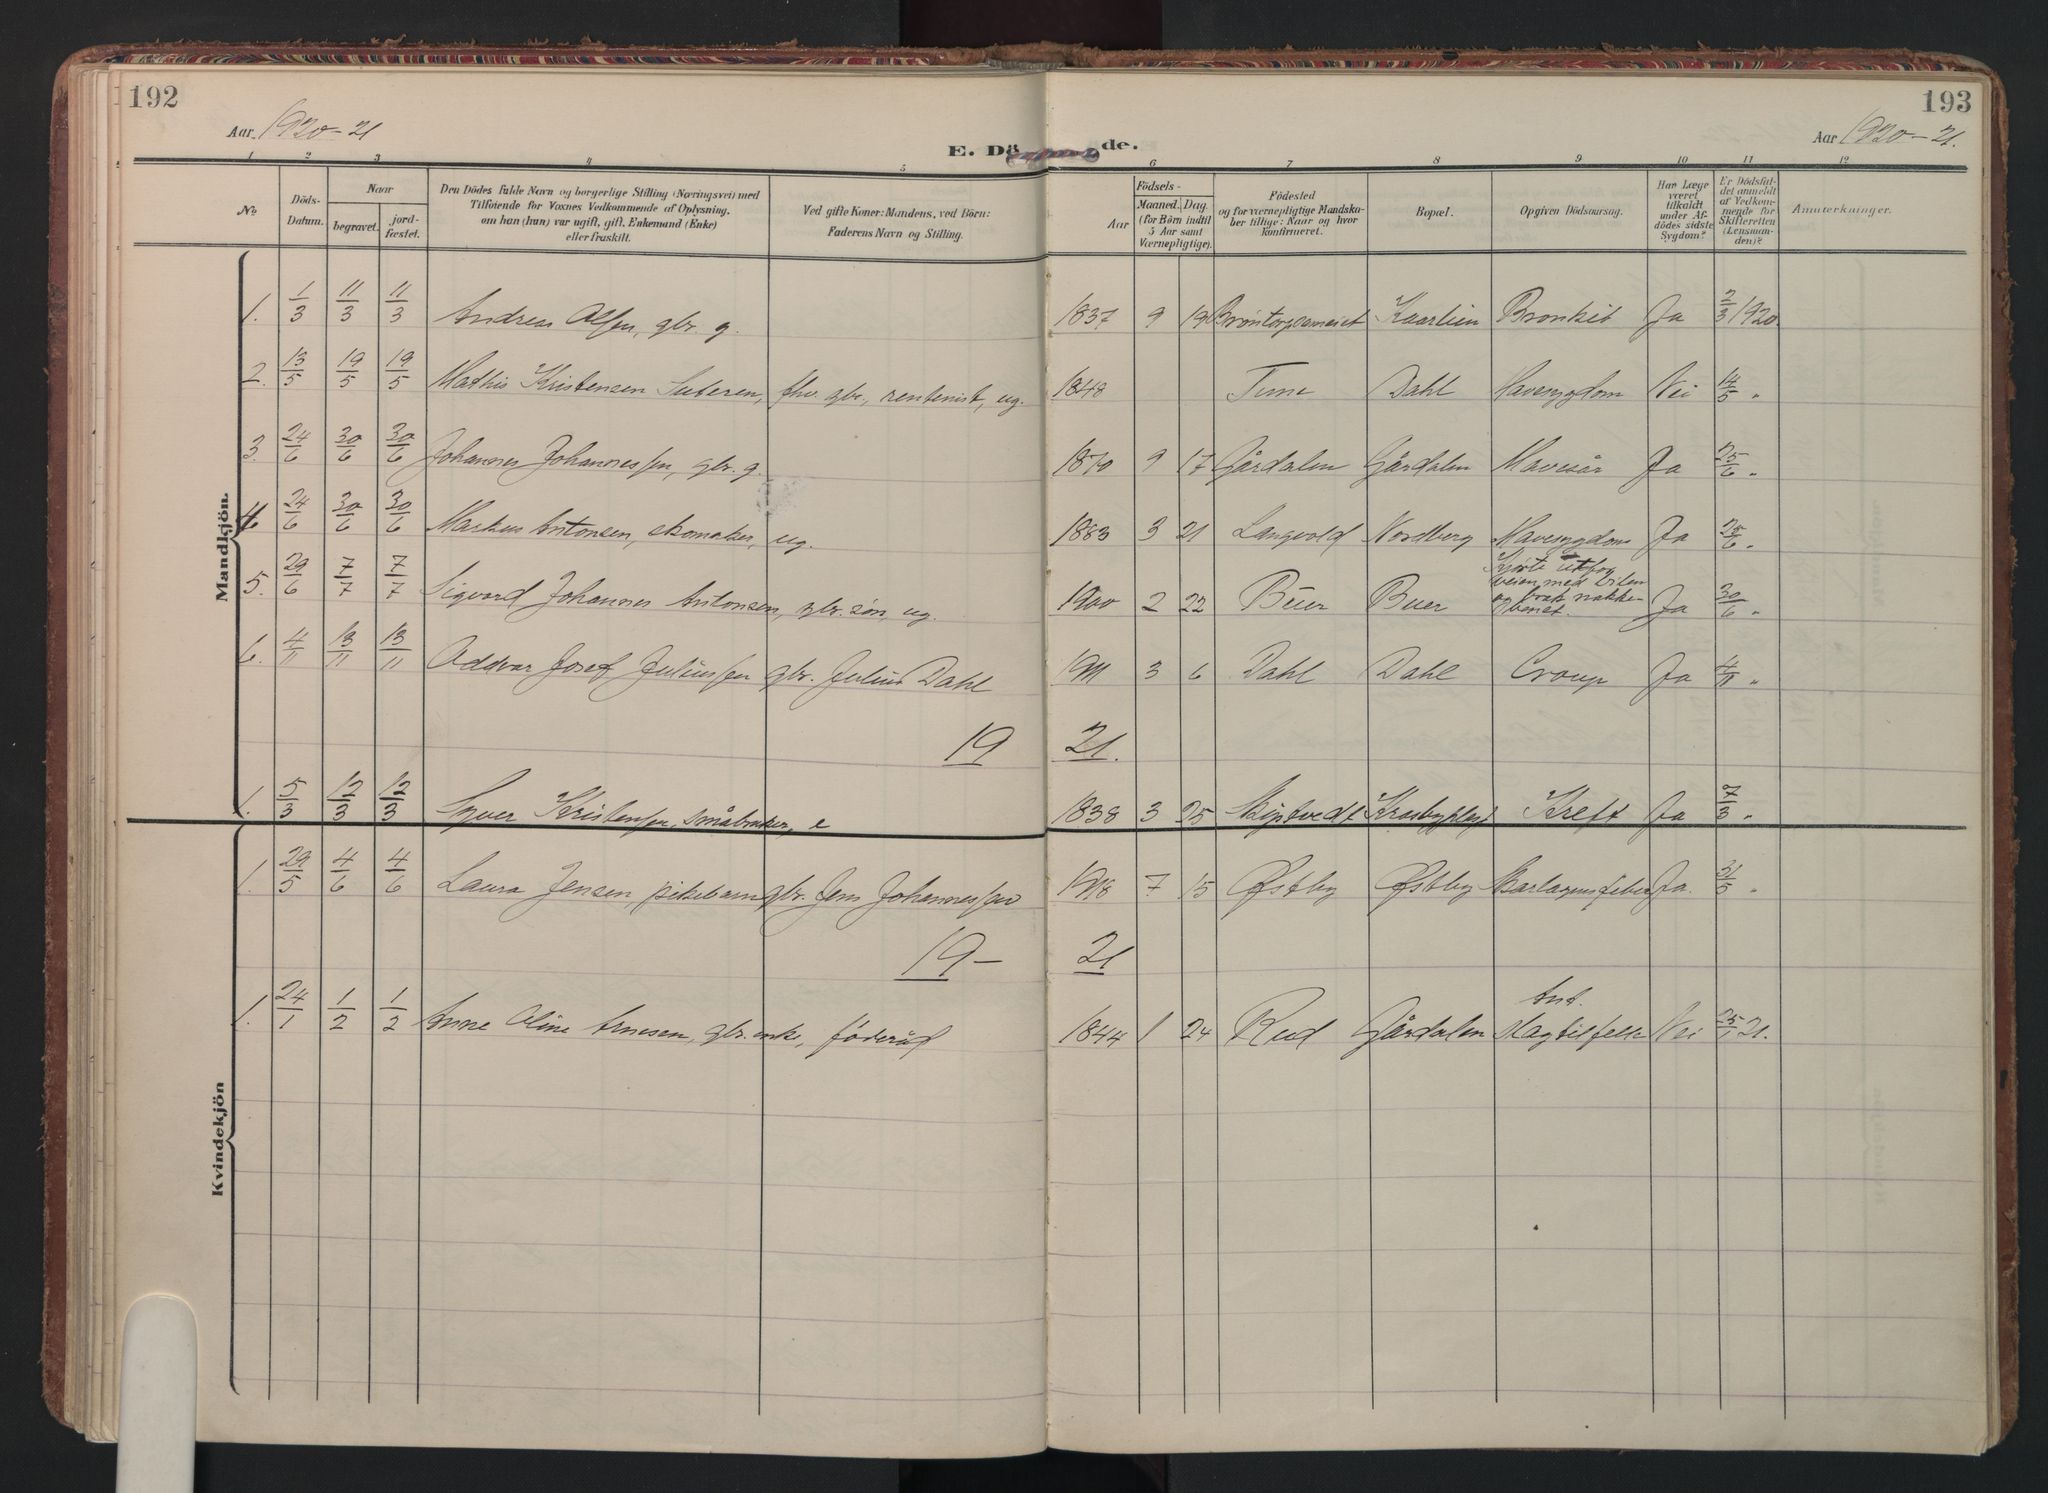 192
193
Aar 1920-21
Aar 1920-21.
E. Dö de.
1 2 3 4 5 6 7 8 9 10 11 12
No.
Döds-Datum.
Naar
begravet.
jord-fæstet.
Den Dödes fulde Navn og borgerlige Stilling (Næringsvei) med
Tilföiende for Voxnes Vedkommende af Oplysning,
om han (hun) var ugift, gift, Enkemand (Enke)
eller fraskilt.
Ved gifte Koner: Mandens, ved Börn:
Faderens Navn og Stilling.
Födsels-
Aar
Maaned. Dag.
(for Börn indtil
5 Aar samt
Værnepligtige).
Födested
og for værnepligtige Mandska-
ber tillige: Naar og hvor
konfirmeret.
Bopæl.
Opgiven Dödsaarsag.
Har Læge
været
tilkaldt
under Af-
dödes sidste
Sygdom?
Er Dödsfal-
det anmeldt
af Vedkom-
mende for
Skifteretten
(Lensman-
den)?
Anmærkninger.
Mandkjön.
1. 1/3 11/3 11/3 Andreas Olsen, gbr. g. 1837 9 19 Kaarlien Bronkit Ja 2/3 1920.
2. 13/5 19/5 19/5 Mathis Kristensen fhv. gbr., rentenist, ug. 1848 Tune Dahl Mavesygdom Nei 14/5 "
3. 24/6 30/6 30/6 Johannes Johannessen, gbr. g. 1870 9 17 Gårdalen Gårdalen Mavesår Ja 25/6 "
4. 24/6 30/6 30/6 Markus Antonsen, skomaker, ug. 1883 3 21 Langvold Nordberg Mavesygdom Ja 25/6 "
5. 29/6 7/7 7/7 Sigvard Johannes Antonsen, gbr. søn, ug. 1900 2 22 Buer Buer Kjørte utfor
veien med bilen
og brak nakke-
benet. Ja 30/6 "
6. 4/11 13/11 13/11 Oddvar Josef Juliussen gbr. Julius Dahl 1911 3 6 Dahl Dahl Croup Ja 4/11 "
19 21.
1. 5/3 12/3 12/3 Syver Kristensen, småbruker, e 1838 3 25 Skiptvedt Kreft Ja 7/3 "
Kvindekjön
1. 29/5 4/6 4/6 Laura Jensen, pikebarn gbr. Jens Johannessen 1918 7 15 Østby Østby Skarlagensfeber Ja. 31/5 "
19- 21
1. 24/1 1/2 1/2 Anne Oline Arnesen, gbr. enke, føderåd 1844 1 24 Rud Gårdalen Ant.
slagtilfelle Nei 25/1 21.